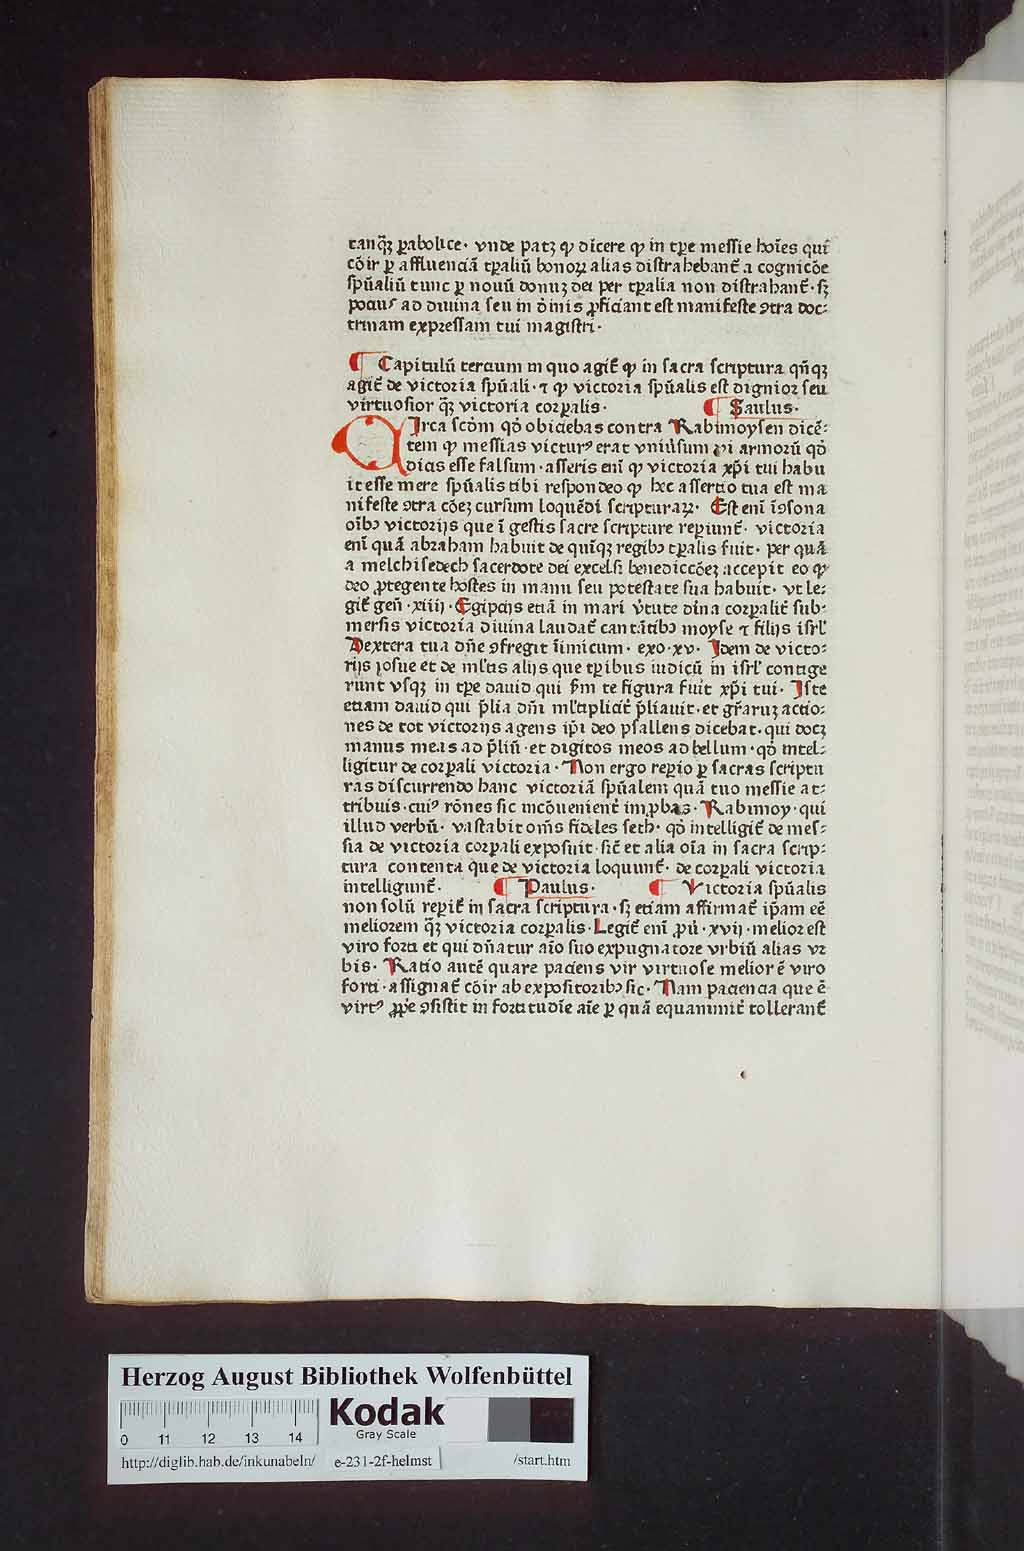 tanq̄ꝫ ꝑabolice· vnde patꝫ ꝙ dicere ꝙ in tꝑe messie hoīes qui
cōir ꝑ affluenciā tꝑaliū bonoꝝ alias distrahebant̄ a cognicōe
spūaliū tunc ꝑ nouū donuꝫ dei per tꝑalia non distrahant̄· sꝫ
pociuꝰ ad diuina seu in dīnis ꝓficiant est manifeste ꝯtra doc⸗
trinam expressam tui magistri·
¶ Capitulū tercium in quo agit̄ ꝙ in sacra scriptura qn̄qꝫ
agit̄ de victoria spūali· ⁊ ꝙ victoria spūalis est dignior seu
virtuosior q̄ꝫ victoria corꝑalis· ¶ Saulus·
CIrca scōm qd̄ obiciebas contra Rabimoysen dicē⸗
tem ꝙ messias victurꝰ erat vniūsum vi armorū qd̄
dicis esse falsum· asseris enī ꝙ victoria xp̄i tui habu
it esse mere spūalis tibi respondeo ꝙ hec assertio tua est ma
nifeste ꝯtra cōeꝫ cursum loquēdi scripturaꝝ· Est enī īꝯsona
oībꝫ victorijs que ī gestis sacre scripture reꝑiunt̄· victoria
enī quā abraham habuit de quīqꝫ regibꝫ tꝑalis fuit· per quā
a melchisedech sacerdote dei excelsi benediccōeꝫ accepit eo ꝙ
deo ꝓtegente hostes in manu seu potestate sua habuit· vt le⸗
git̄ gen̄· xiiij· Egipcijs etiā in mari v̄tute diīna corꝑalit̄ sub⸗
mersis victoria diuina laudat̄ cantātibꝫ moyse ⁊ filijs isrl̄
Dextera tua dn̄e ꝯfregit īimicum· exo· xv· Idem de victo⸗
rijs iosue et de ml̄tis alijs que tꝑibus iudicū in isrl̄ contige
runt vsqꝫ in tꝑe dauid qui s̄m te figura fuit xp̄i tui· Iste
etiam dauid qui p̄lia dn̄i ml̄tiplicit̄ p̄liauit· et gr̄aruꝫ actio⸗
nes de tot victorijs agens ip̄i deo psallens dicebat· qui docꝫ
manus meas ad p̄liū· et digitos meos ad bellum· qd̄ intel⸗
ligitur de corꝑali victoria· Non ergo reꝑio ꝑ sacras scriptu
ras discurrendo hanc victoriā spūalem quā tuo messie at⸗
tribuis· cuiꝰ rōnes sic incōuenient̄ imꝓbas· Rabimoy· qui
illud verbū· vastabit om̄s fideles seth· qd̄ intelligit̄ de mes⸗
sia de victoria corꝑali exposuit· sic̄ et alia oīa in sacra scrip⸗
tura contenta que de victoria loquunt̄· de corꝑali victoria
intelligunt̄· ¶ Paulus· ¶ Victoria spūalis
non solū reꝑit̄ in sacra scriptura· sꝫ etiam affirmat̄ ip̄am eē
meliorem q̄ꝫ victoria corꝑalis· Legit̄ enī ꝓū· xvij· melior est
viro forti et qui dn̄atur aīo suo expugnatore vrbiū alias vr
bis· Ratio autē quare paciens vir virtuose melior ē viro
forti· assignat̄ cōir ab expositoribꝫ sic· Nam paciencia que ē
virtꝰ ꝓpe ꝯsistit in fortitudīe aīe ꝑ quā equanimit̄ tollerant̄
Herzog August Bibliothek Wolfenbüttel
0 11 12 13 14
Kodak
Gray Scale
http://diglib.hab.de/inkunabeln/ e-231-2f-helmst /start.htm